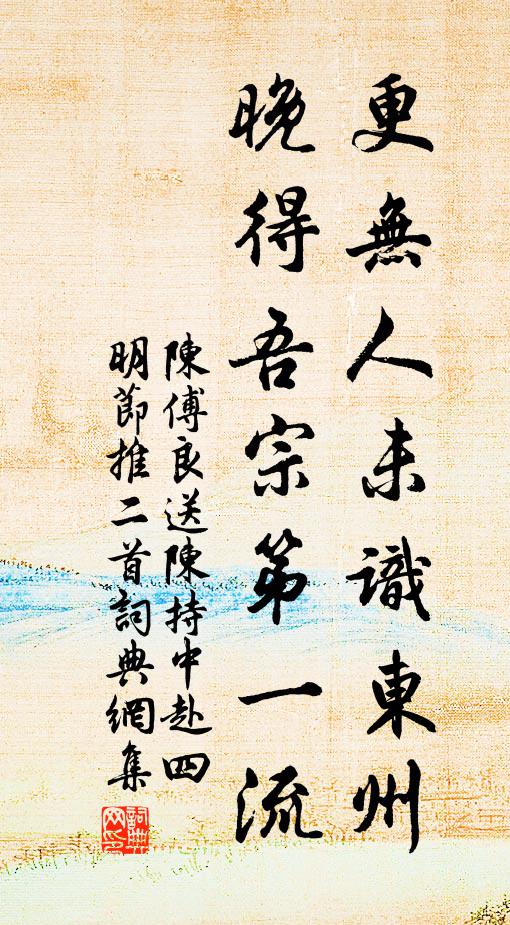 更無人未識東州
晚得吾宗第一流
陳傅良送陳持中赴四
明節推二首詞典網集
詞典
網印